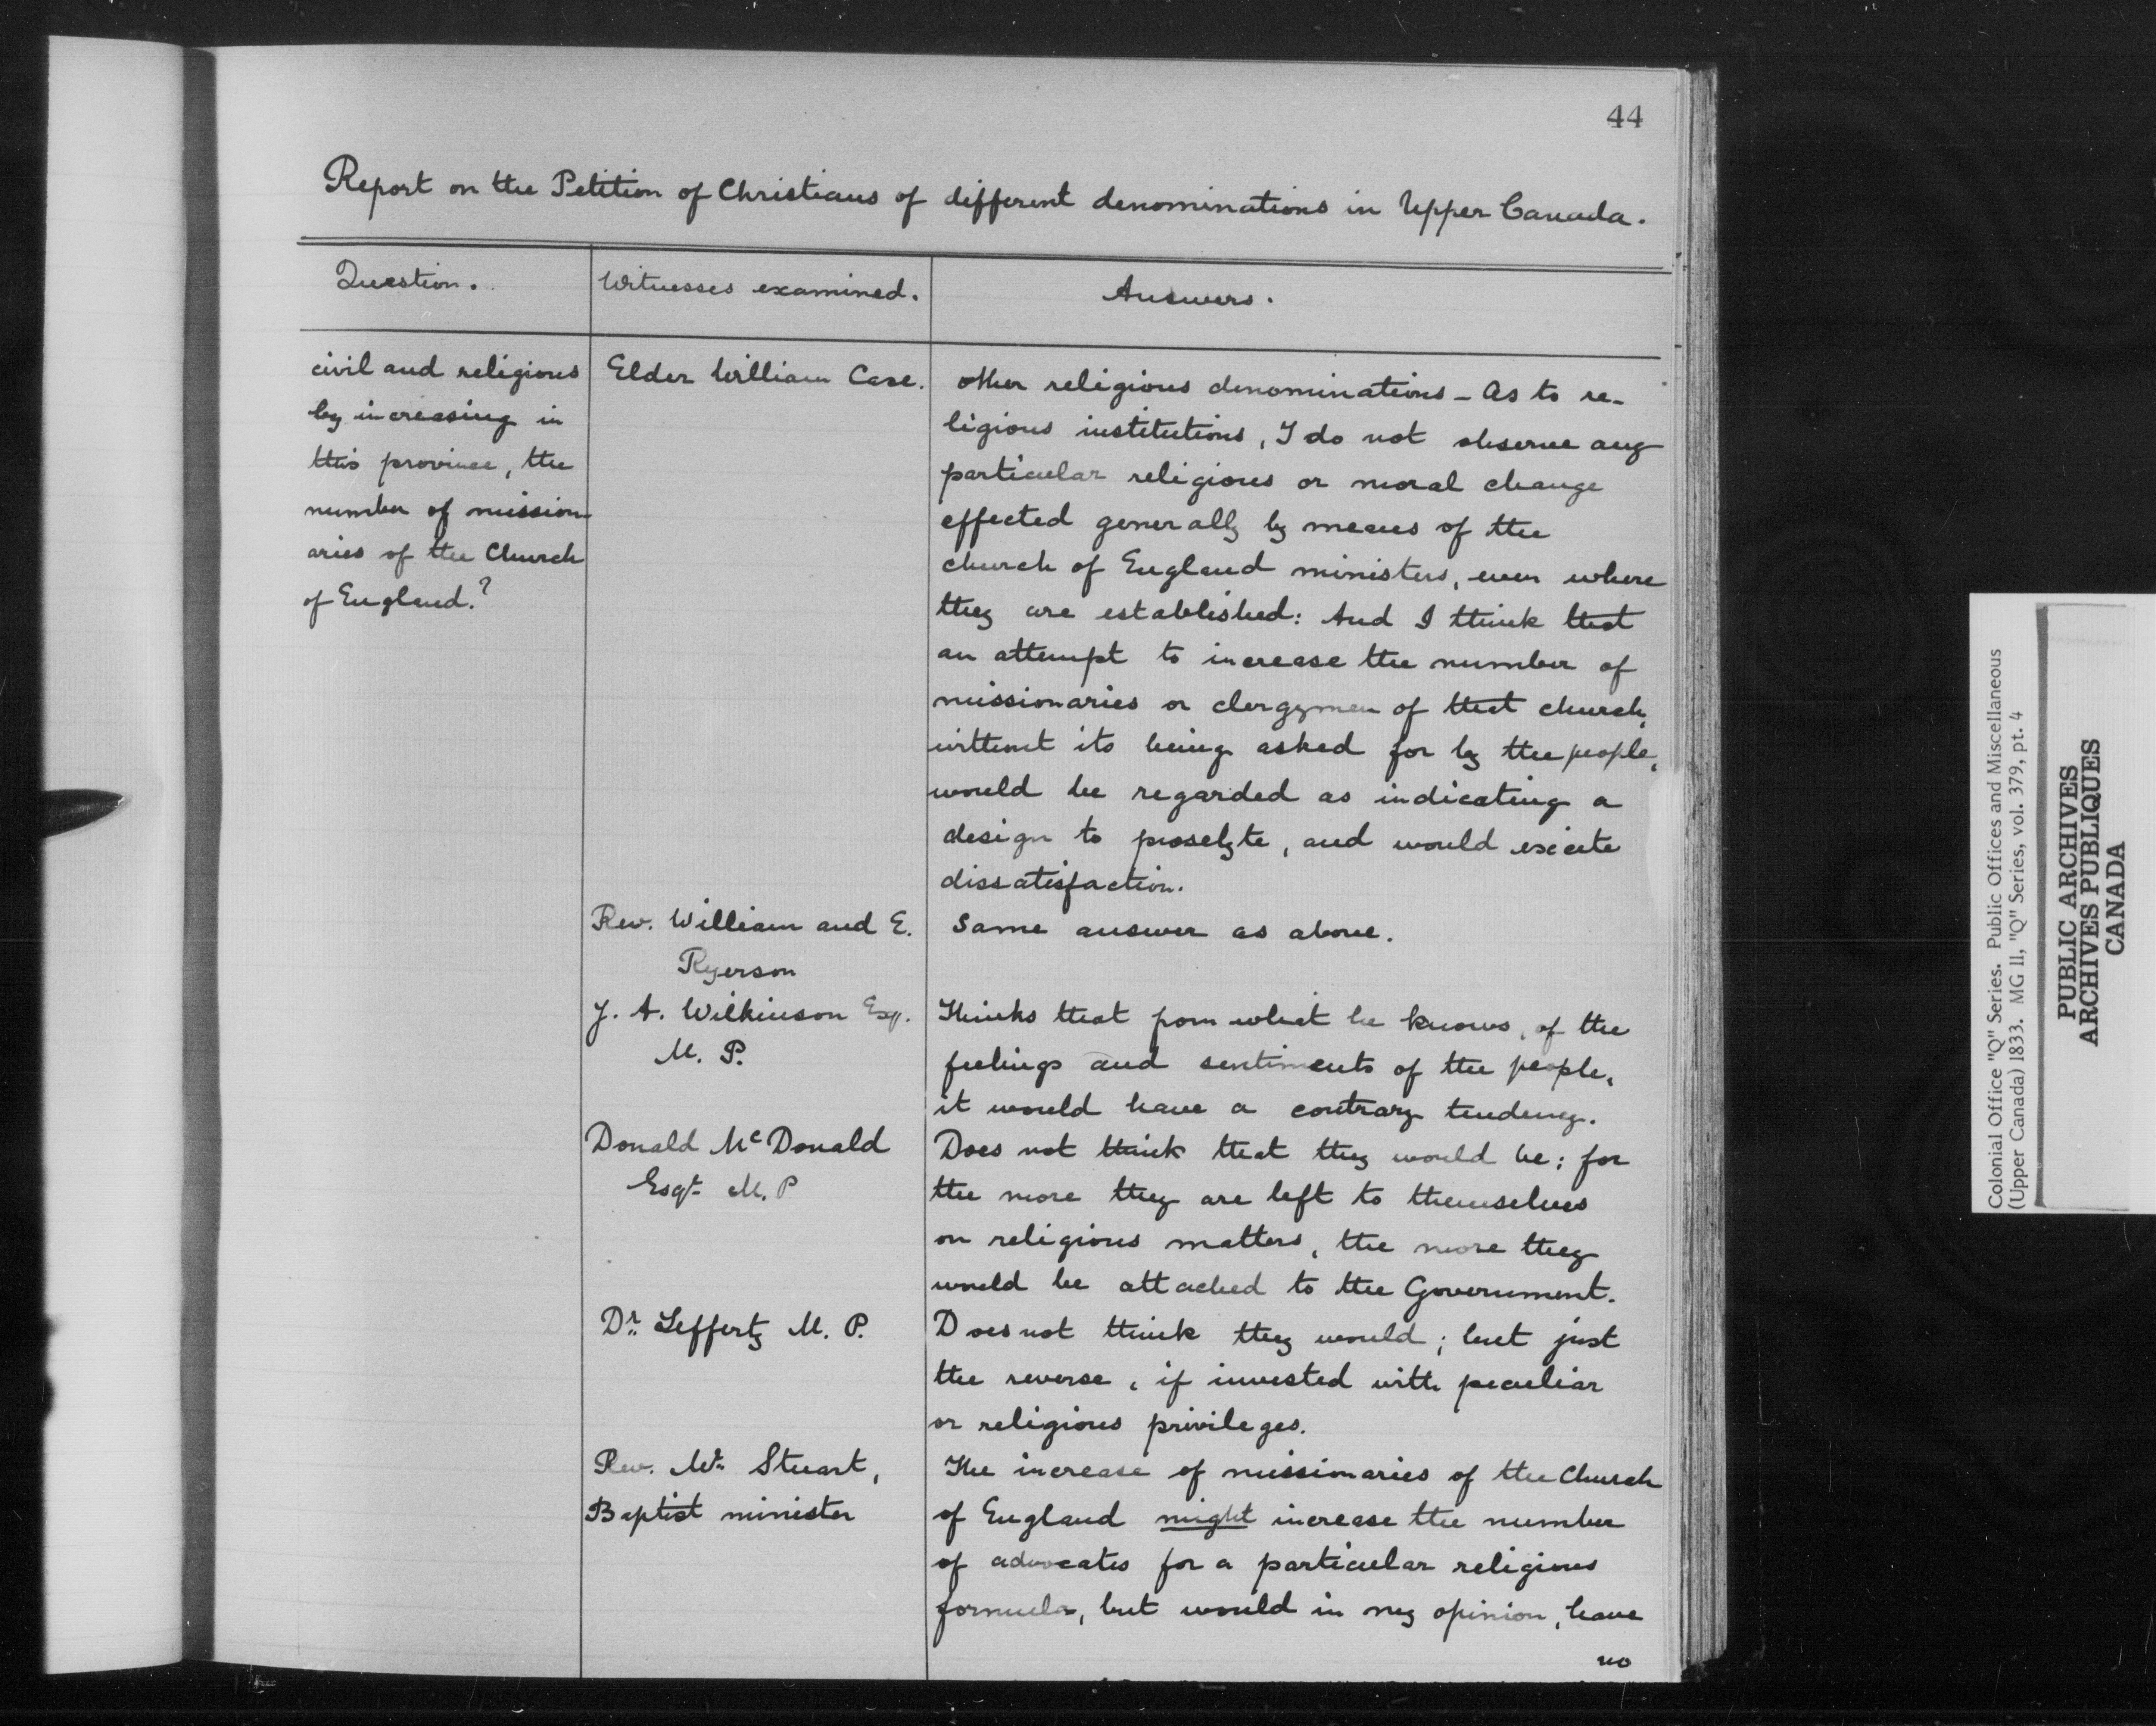 44
Report on the Petition of Christians of different denominations in Upper Canada.
Question.
Witnesses examined.
Answers.
civil and religious
by increasing in
this province, the
number of mission-
aries of the Church
of England?
Elder William Case.
other religious denominations - As to re-
ligious institutions, I do not observe any
particular religious or moral change
effected generally by means of the
church of England ministers, even where
they are established: And I think that
an attempt to increase the number of
missionaries or clergymen of that church,
without its being asked for by the people,
would be regarded as indicating a
design to proselyte, and would excite
dissatisfaction.
Rev. William and E.
Ryerson
Same answer as above.
J. A. Wilkinson Esq.
M. P.
Thinks that from what he knows, of the
feelings and sentiments of the people,
it would have a contrary tendency.
Donald McDonald
Esqr. M. P
Does not think that they would be; for
the more they are left to themselves
on religious matters, the more they
would be attached to the Government.
Dr. Leffertz M. P.
Does not think they would; but just
the reverse, if invested with peculiar
or religious privileges.
Rev. Mr. Stuart,
Baptist minister
The increase of missionaries of the Church
of England might increase the number
of advocates for a particular religious
formula, but would in my opinion, have
no
Colonial Office "Q" Series. Public Offices and Miscellaneous
(Upper Canada) 1833. MG 11, "Q" Series, vol. 379, pt. 4
PUBLIC ARCHIVES
ARCHIVES PUBLIQUES
CANADA